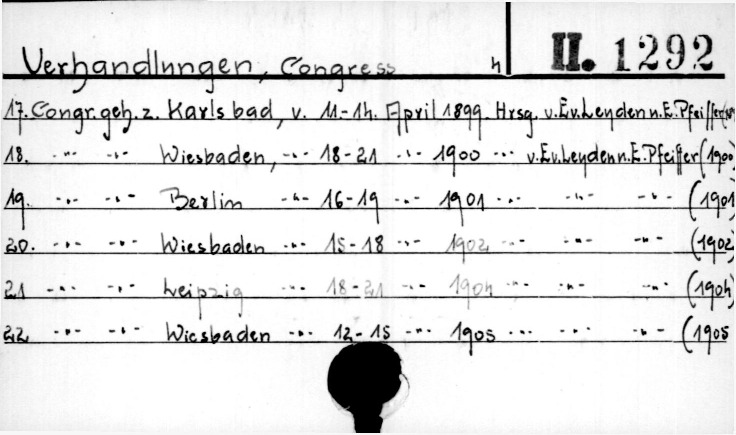 Verhandlungen, Congress 4 II. 1292
17. Congr. geh. z. Karlsbad, v. 11-14. April 1899. Hrsg. v. E.v.Leyden u. E. Pfeiffer
18. -"- -"- Wiesbaden, -"- 18-21 -"- 1900 -"- v. E.v.Leyden u. E. Pfeiffer (1900)
19. -"- -"- Berlin -"- 16-19 -"- 1901 -"- -"- -"- (1901
20. -"- -"- Wiesbaden -"- 15-18 -"- 1902 -"- -"- -"- (1902
21 -"- -"- Leipzig -"- 18-21 -"- 1904 -"- -"- -"- (1904)
22. -"- -"- Wiesbaden -"- 12-15 -"- 1905 -"- -"- -"- (1905